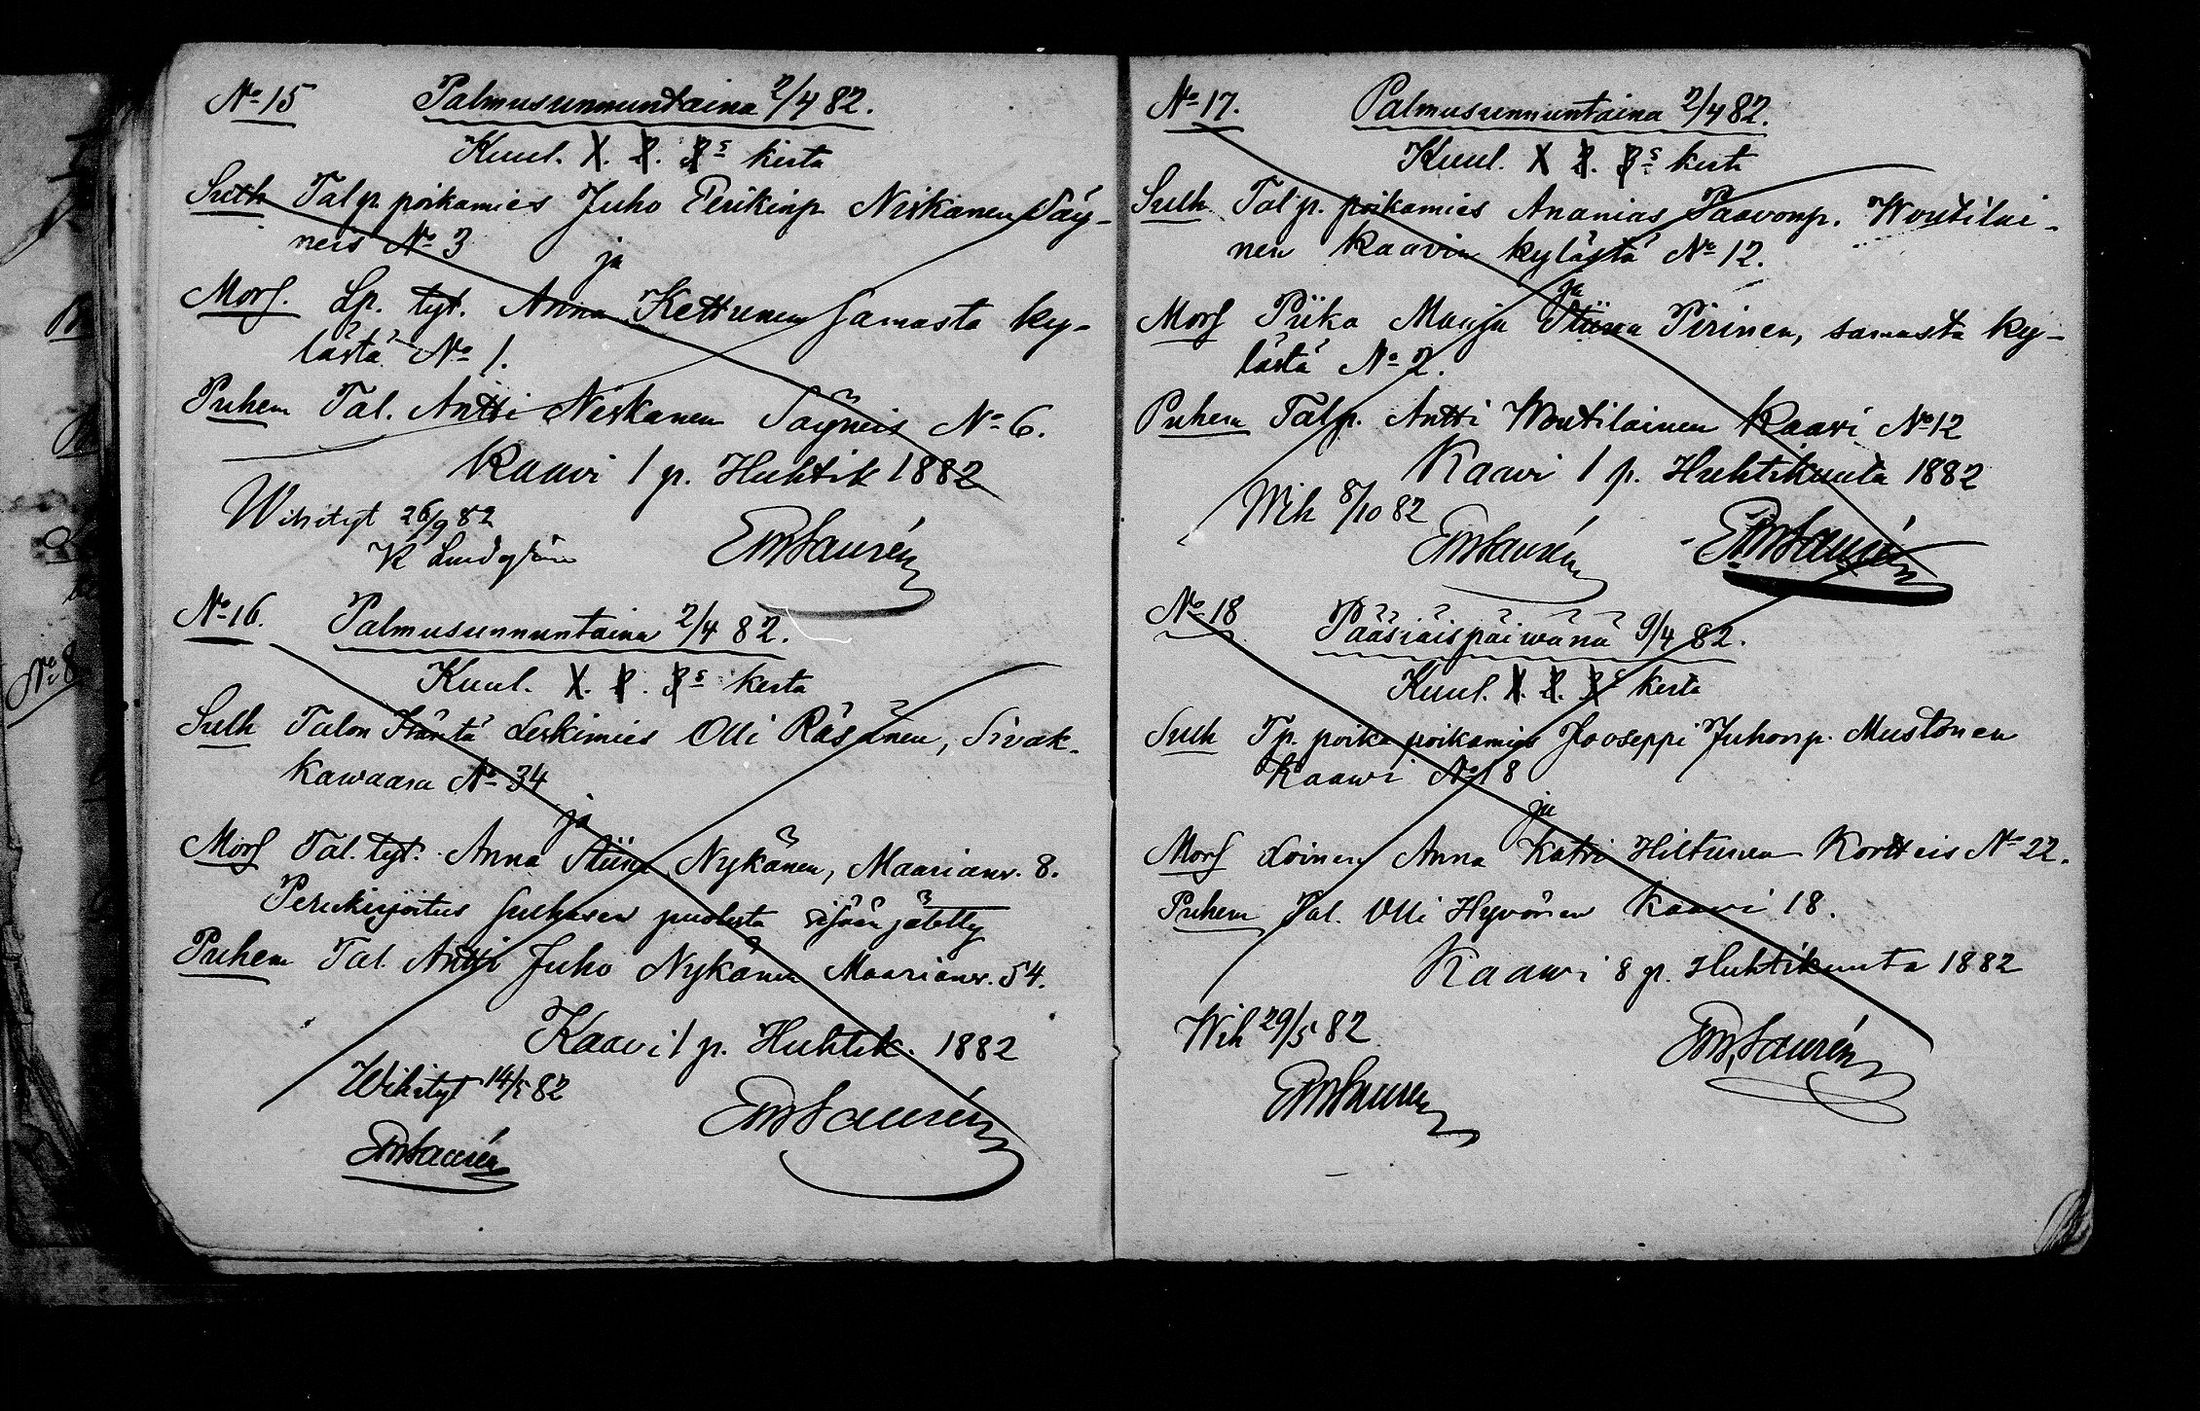 No 15 Palmusunnuntaina 2/4 82.
Kuul. 1. 2. 3s kerta
Sulh Talp. poikamies Juho Erikinp. Niskanen Säy-
neis No 3
ja
Mors. Lp. tyt. Anna Kettunen samasta ky-
lästä No 1.
Puhem Tal. Antti Niskanen Säyneis No 6.
Kaavi 1 p. Huhtik 1882
Wihityt 26/9 82
K
EWLaurén
No 16. Palmusunnuntaina 2/4 82.
Kuul. 1. 2. 3s kerta
Sulh Talon Isäntä Leskimies Olli Räsänen, Sivak-
kawaara No 34
ja
Mors Tal. tyt. Anna Stiina Nykänen, Maarianw. 8.
Perukirjoitus sulhasen puolesta sisään jätetty
Puhem Tal. Antti Juho Nykänen Maarianw. 54.
Kaavi 1 p. Huhtik. 1882
Wihityt 14/5 82
EWLaurén
EWLaurén
No 17. Palmusunnuntaina 2/4 82.
Kuul. 1 2. 3s kerta
Sulh. Talp. poikamies Ananias Paavonp. Woutilai-
nen Kaavin kylästä No 12.
ja
Mors Piika Maija Stiina Pirinen, samasta ky-
lästä No 2.
Puhem Talp. Antti Woutilainen Kaavi No 12
Kaavi 1 p. Huhtikuuta 1882
Wih 8/10 82
EWLaurén
EWLaurén
No 18 Pääsiäispäiwänä 9/4 82.
Kuul. 1. 2. 3s kerta
Sulh Tp. poika poikamies Jooseppi Juhonp. Mustonen
Kaawi No 18
ja
Mors Loinen Anna Katri Hiltunen Kortteis No 22.
Puhem Tal. Olli Hyvönen Kaawi 18.
Kaawi 8 p. Huhtikuuta 1882
Wih 29/5 82
EWLaurén
EWLaurén
No 8